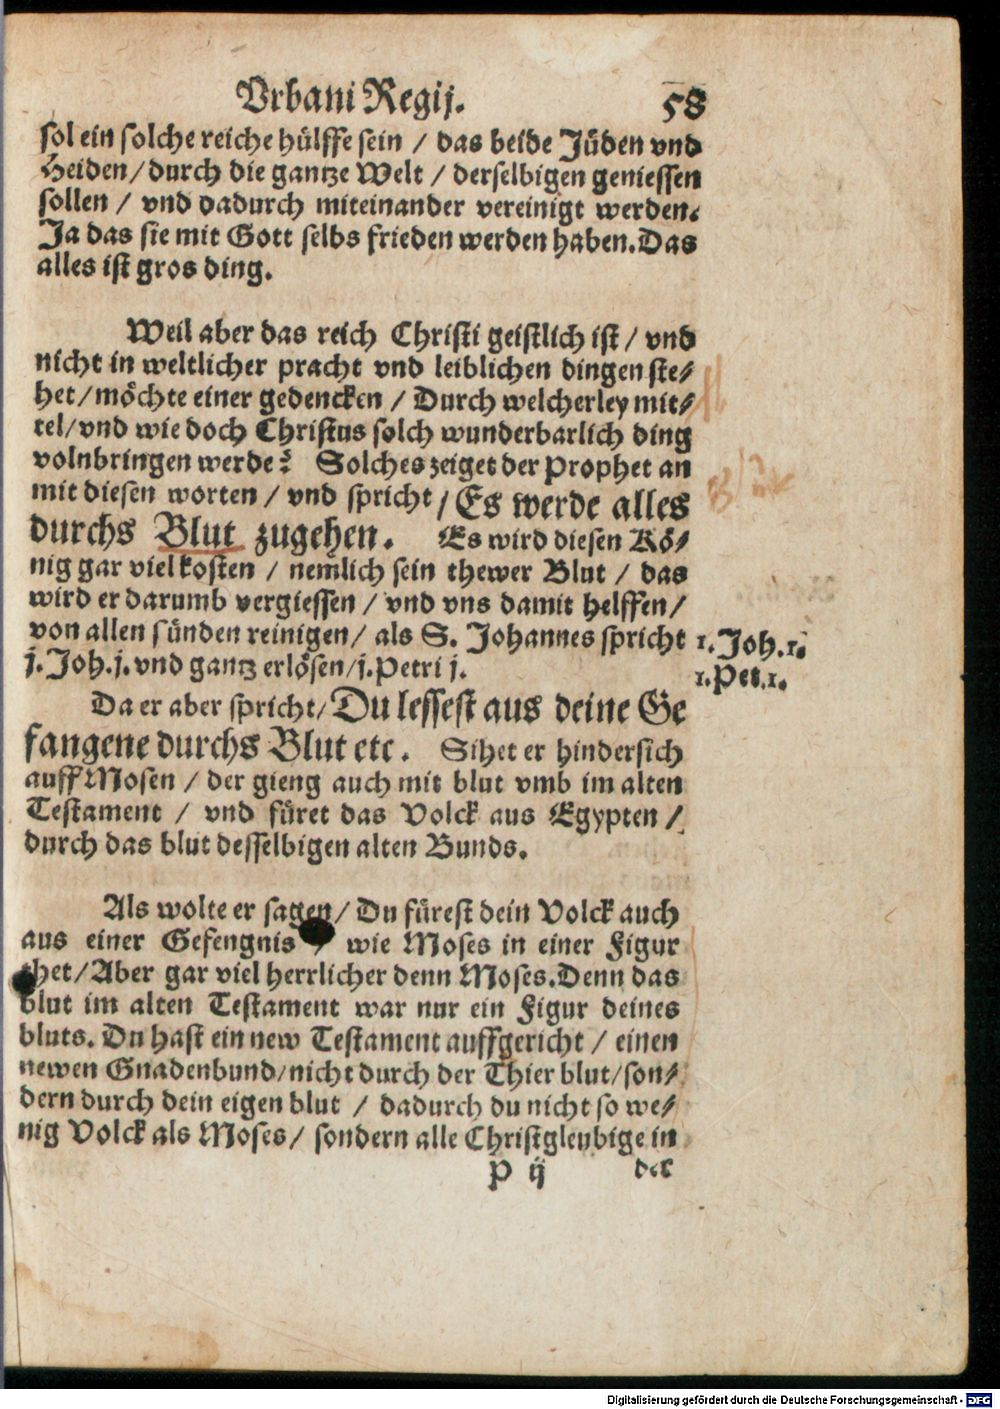 Vrbani Regij. 58
sol ein solche reiche hülffe sein / das beide Jüden vnd
Heiden / durch die gantze Welt / derselbigen geniessen
sollen / vnd dadurch miteinander vereinigt werden.
Ja das sie mit Gott selbs frieden werden haben. Das
alles ist gros ding.
Weil aber das reich Christi geistlich ist / vnd
nicht in weltlicher pracht vnd leiblichen dingen ste-
het / möchte einer gedencken / Durch welcherley mit-
tel / vnd wie doch Christus solch wunderbarlich ding
volnbringen werde? Solches zeiget der Prophet an
mit diesen worten / vnd spricht / Es werde alles
durchs Blut zugehen. Es wird diesen Kö-
nig gar viel kosten / nemlich sein thewer Blut / das
wird er darumb vergiessen / vnd vns damit helffen /
von allen sünden reinigen / als S. Johannes spricht 1. Joh. 1.
j. Joh. j. vnd gantz erlösen / j. Petri j. 1. Pet. 1.
Da er aber spricht / Du lessest aus deine Ge
fangene durchs Blut etc. Sihet er hindersich
auff Mosen / der gieng auch mit blut vmb im alten
Testament / vnd füret das Volck aus Egypten /
durch das blut desselbigen alten Bunds.
Als wolte er sagen / Du fürest dein Volck auch
aus einer Gefengnis / wie Moses in einer Figur
thet / Aber gar viel herrlicher denn Moses. Denn das
blut im alten Testament war nur ein Figur deines
bluts. Du hast ein new Testament auffgericht / einen
newen Gnadenbund / nicht durch der Thier blut / son-
dern durch dein eigen blut / dadurch du nicht so we-
nig Volck als Moses / sondern alle Christgleubige in
P ij der
Digitalisierung gefördert durch die Deutsche Forschungsgemeinschaft - DFG